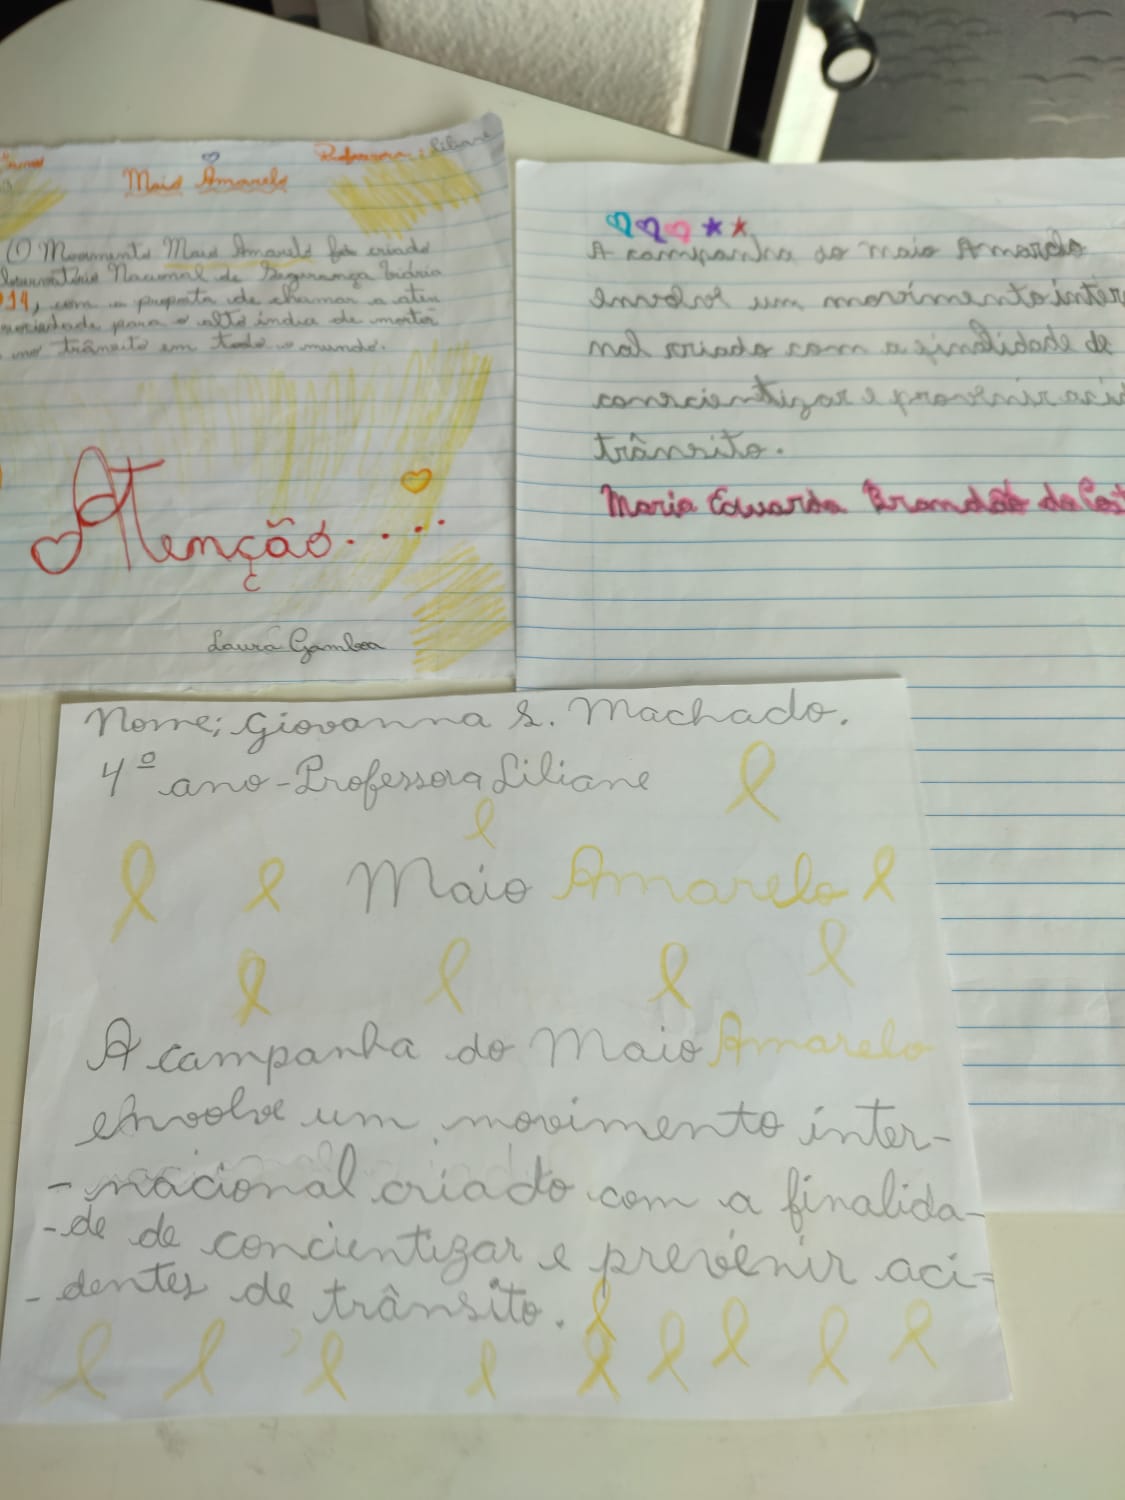 Professora: Liliane
Maio Amarelo
O Movimento Maio Amarelo foi criado
Observatório Nacional de Segurança Viária
14, com a proposta de chamar a aten
sociedade para o alto índia de mortes
no trânsito em todo o mundo.
Atenção....
Laura Gamboa
A campanha do maio Amarelo
envolve um movimento inter
nal criado com a finalidade de
conscientizar e provenir acid
trânsito.
Maria Eduarda Brandão da Cost
Nome; Giovanna S. Machado.
4º ano - Professora Liliane
Maio Amarelo
A campanha do Maio Amarelo
envolve um movimento inter-
-nacional criado com a finalida-
-de de concientizar e prevenir aci-
-dentes de trânsito.